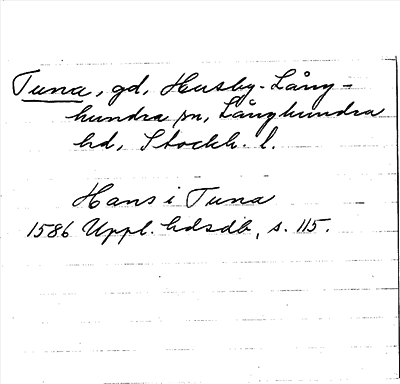 Tuna, gd, Husby-Lång-
hundra sn, Långhundra
hd, Stockh. l.
Hans i Tuna
1586 Uppl. hdsdb, s. 115.